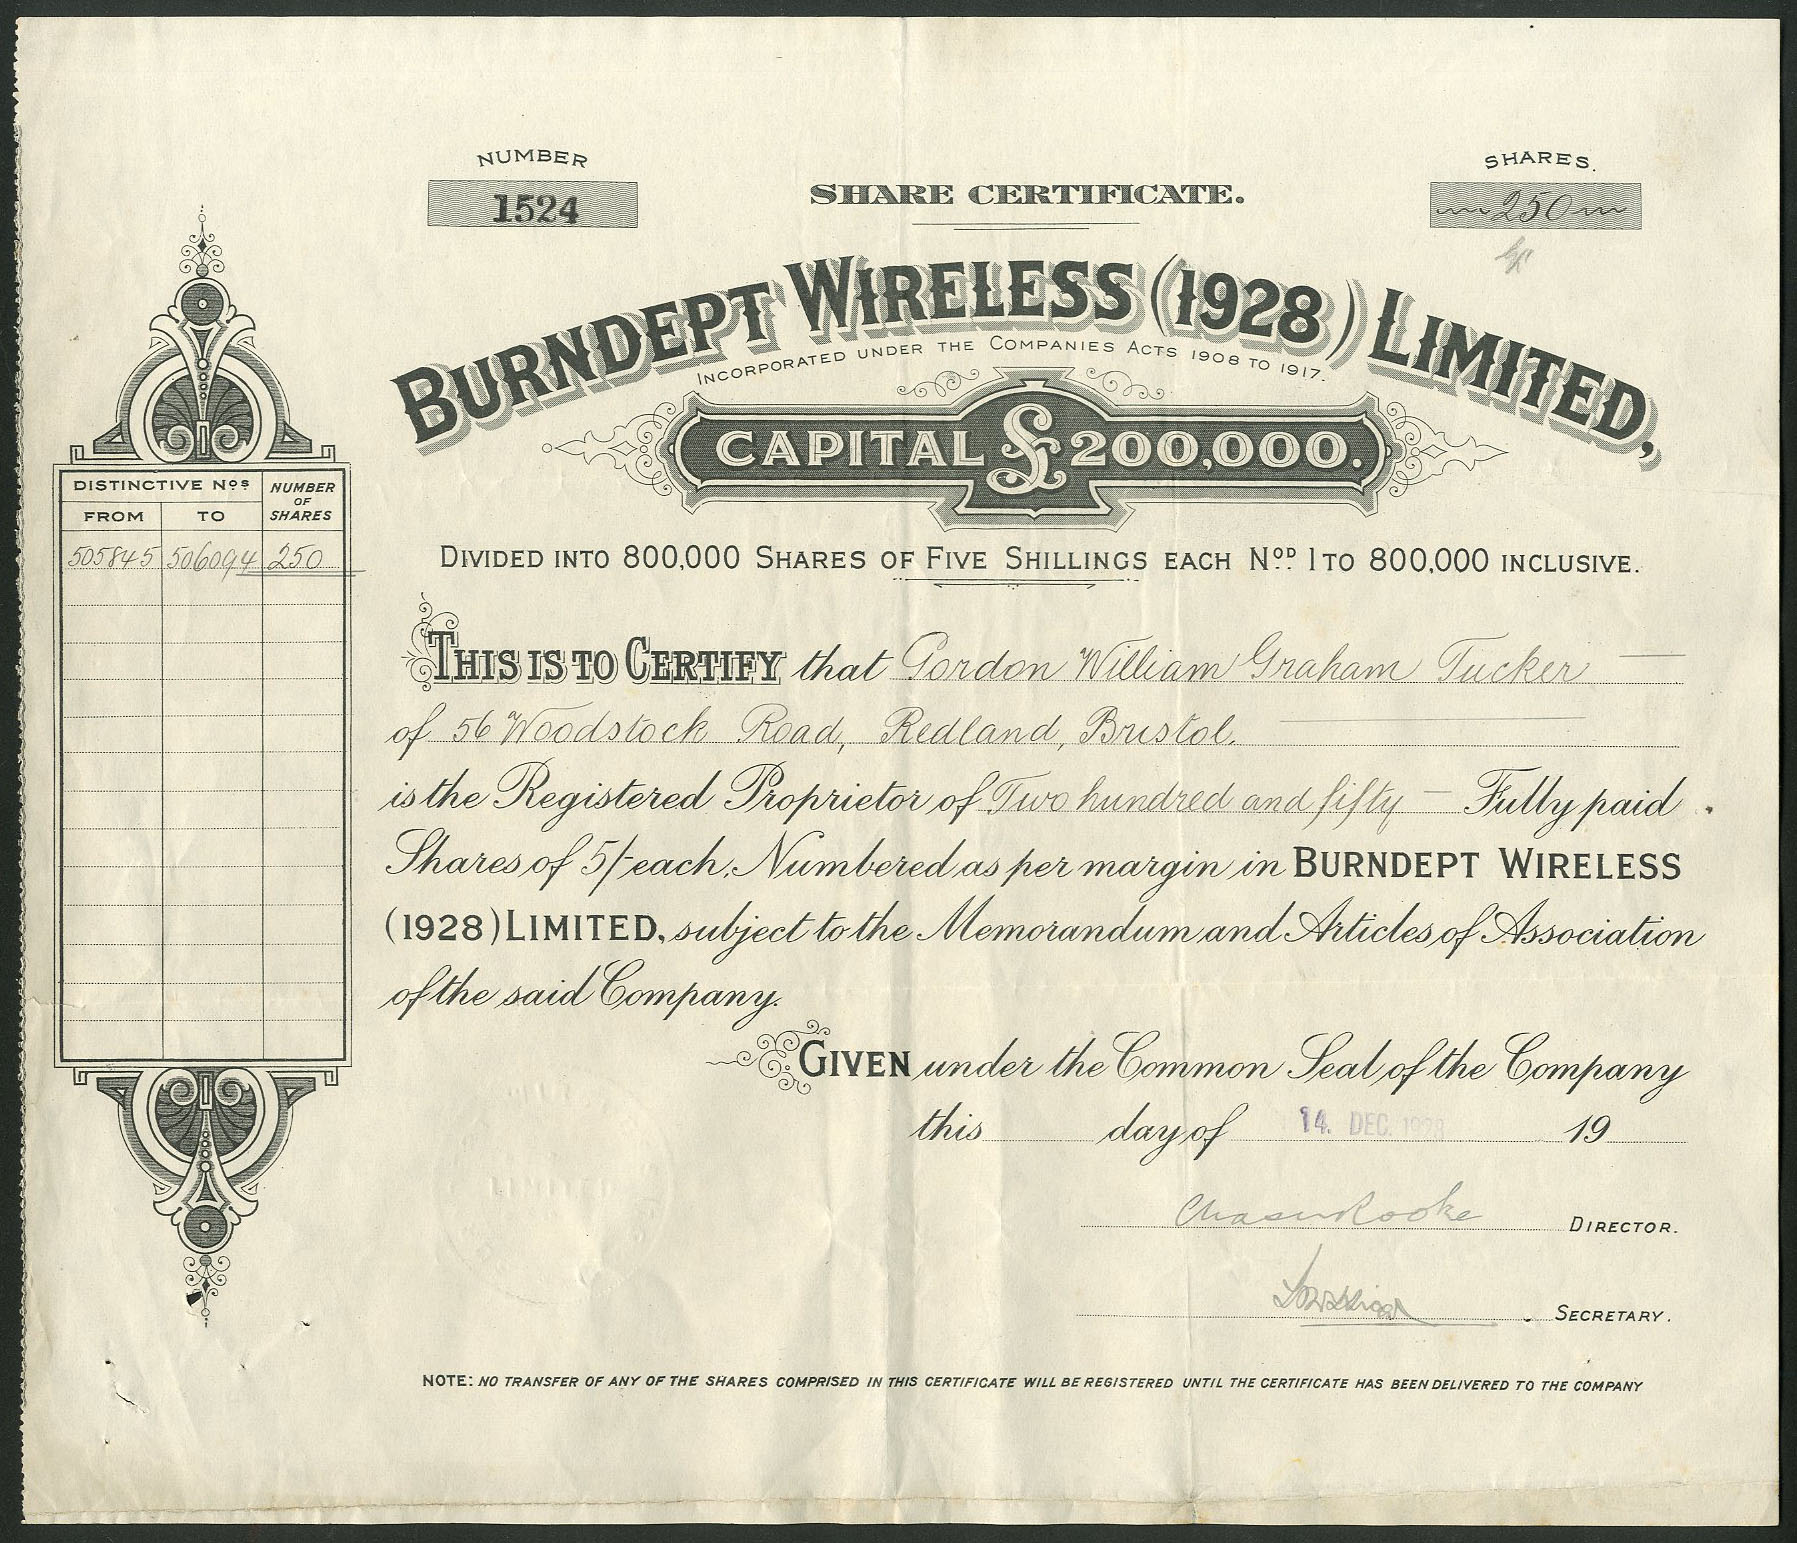 NUMBER
1524
SHARE CERTIFICATE.
SHARES.
250
BURNDEPT WIRELESS (1928) LIMITED,
INCORPORATED UNDER THE COMPANIES ACTS 1908 TO 1917.
CAPITAL £200,000.
DIVIDED INTO 800,000 SHARES OF FIVE SHILLINGS EACH NOD 1 TO 800,000 INCLUSIVE.
DISTINCTIVE NOS
NUMBER OF SHARES
FROM TO
505845 506094 250
THIS IS TO CERTIFY that Gordon William Graham Tucker
of 56 Woodstock Road, Redland, Bristol.
is the Registered Proprietor of Two hundred and fifty — Fully paid
Shares of 5/- each, Numbered as per margin in BURNDEPT WIRELESS
(1928) LIMITED, subject to the Memorandum and Articles of Association
of the said Company.
GIVEN under the Common Seal of the Company
this day of 14. DEC. 1928 19
DIRECTOR.
SECRETARY.
LIMITED
NOTE: NO TRANSFER OF ANY OF THE SHARES COMPRISED IN THIS CERTIFICATE WILL BE REGISTERED UNTIL THE CERTIFICATE HAS BEEN DELIVERED TO THE COMPANY